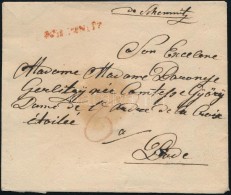 de Schemnitz
SCHEMNITZ
Son Excelence
Madame Madame Baronesse
Gerliczy née Comtesse Györy
Dame de l'Ordre de la Croix
étoilée
à
Bude